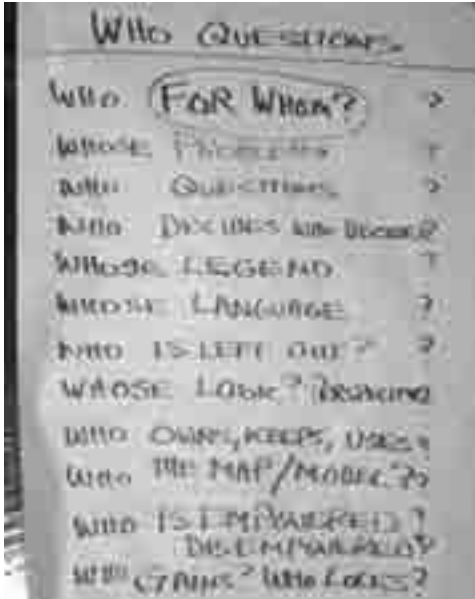 WHO QUESTIONS
WHO FOR WHOM? ?
WHOSE PROBLEMS ?
WHO QUESTIONS ?
WHO DECIDES WHO DECIDES?
WHOSE LEGEND ?
WHOSE LANGUAGE ?
WHO IS LEFT OUT? ?
WHOSE LOOK?
WHO OWNS, KEEPS, USES?
WHO THE MAP/MODEL?
WHO IS EMPOWERED?
DISEMPOWERED?
WHO GAINS? WHO LOSES?